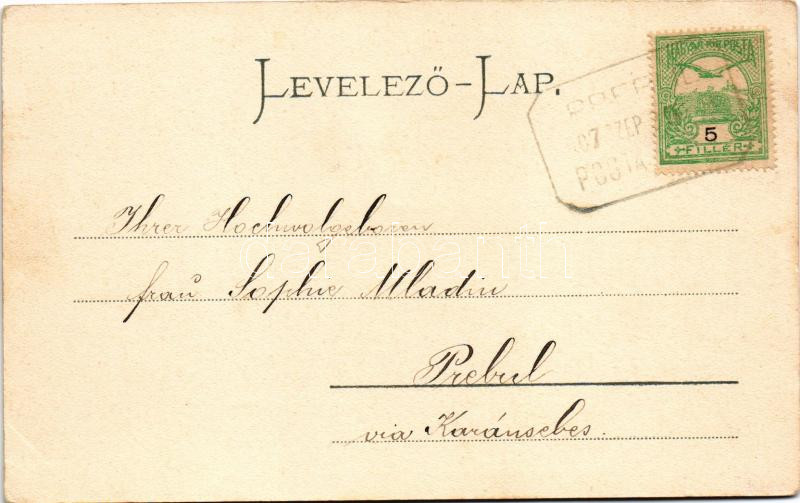 LEVELEZŐ-LAP.
MAGYAR KIR. POSTA
5
FILLÉR
POSTA
Ihrer Hochwolgeboren
frau Sophie Mladin
Prebul
via Karánsebes.